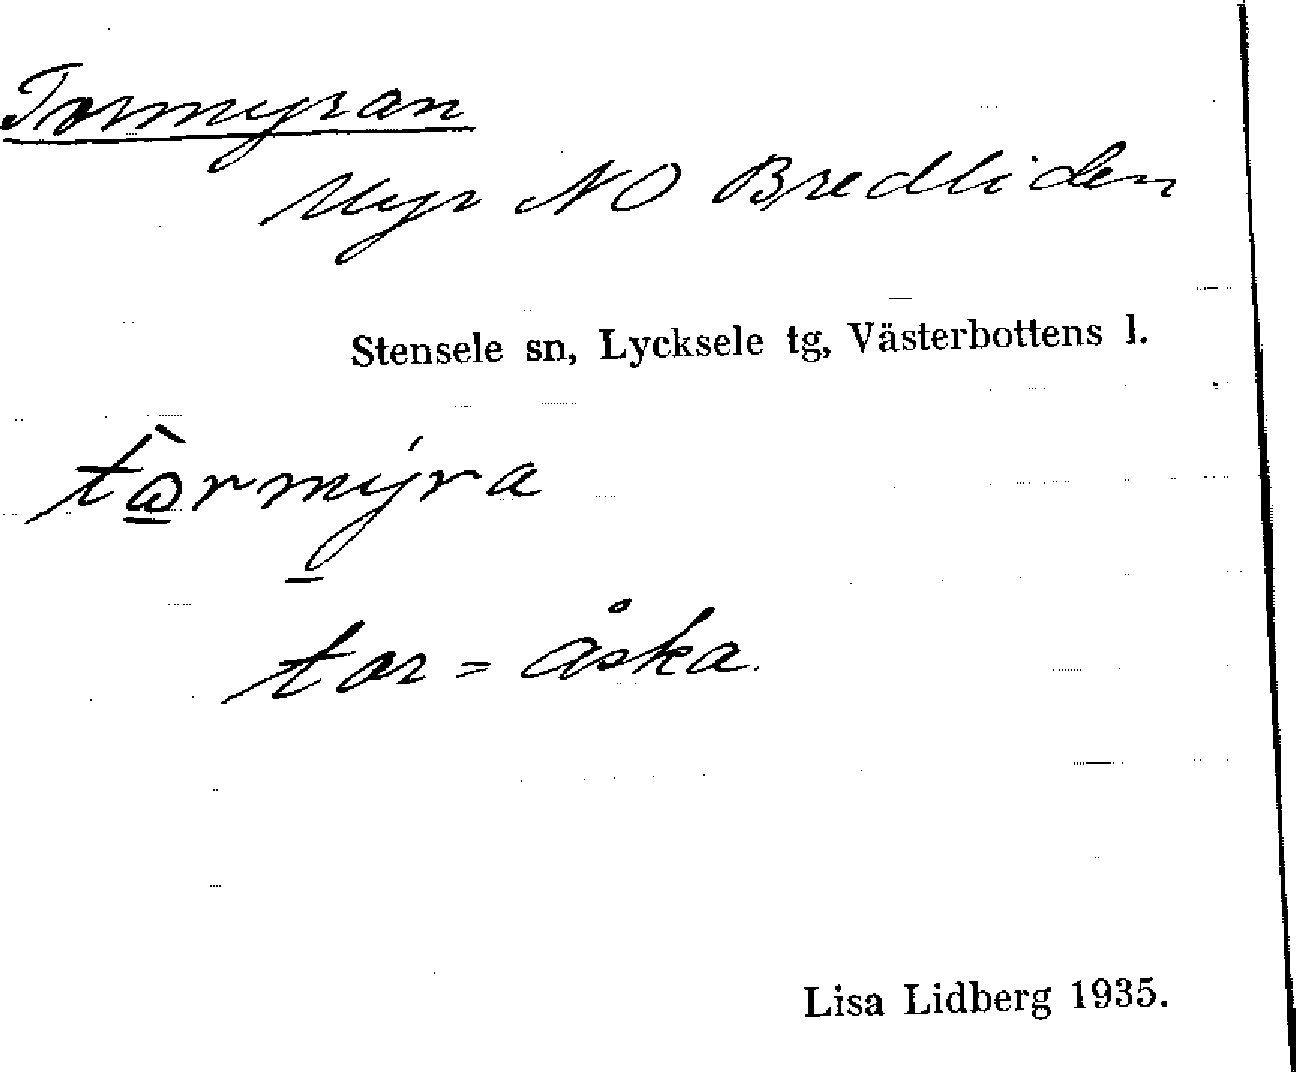 Tormyran
Myr NO Bredliden
Stensele sn, Lycksele tg, Västerbottens l.
tὼ̱rmý̱ra
tor = åska.
Lisa Lidberg 1935.